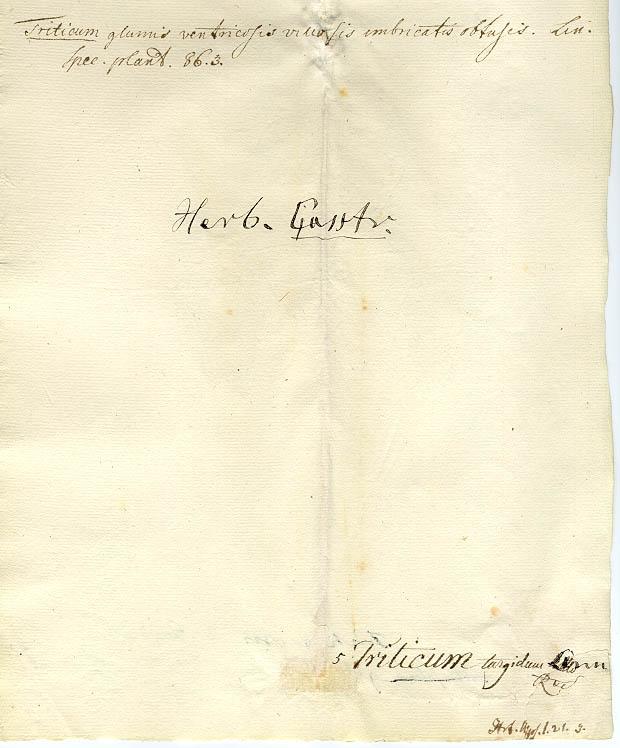 Triticum glumis ventricosis villosis imbricatis obtusis. Lin.
spec. plant. 86.3.
Herb.
5 Triticum turgidum Linn